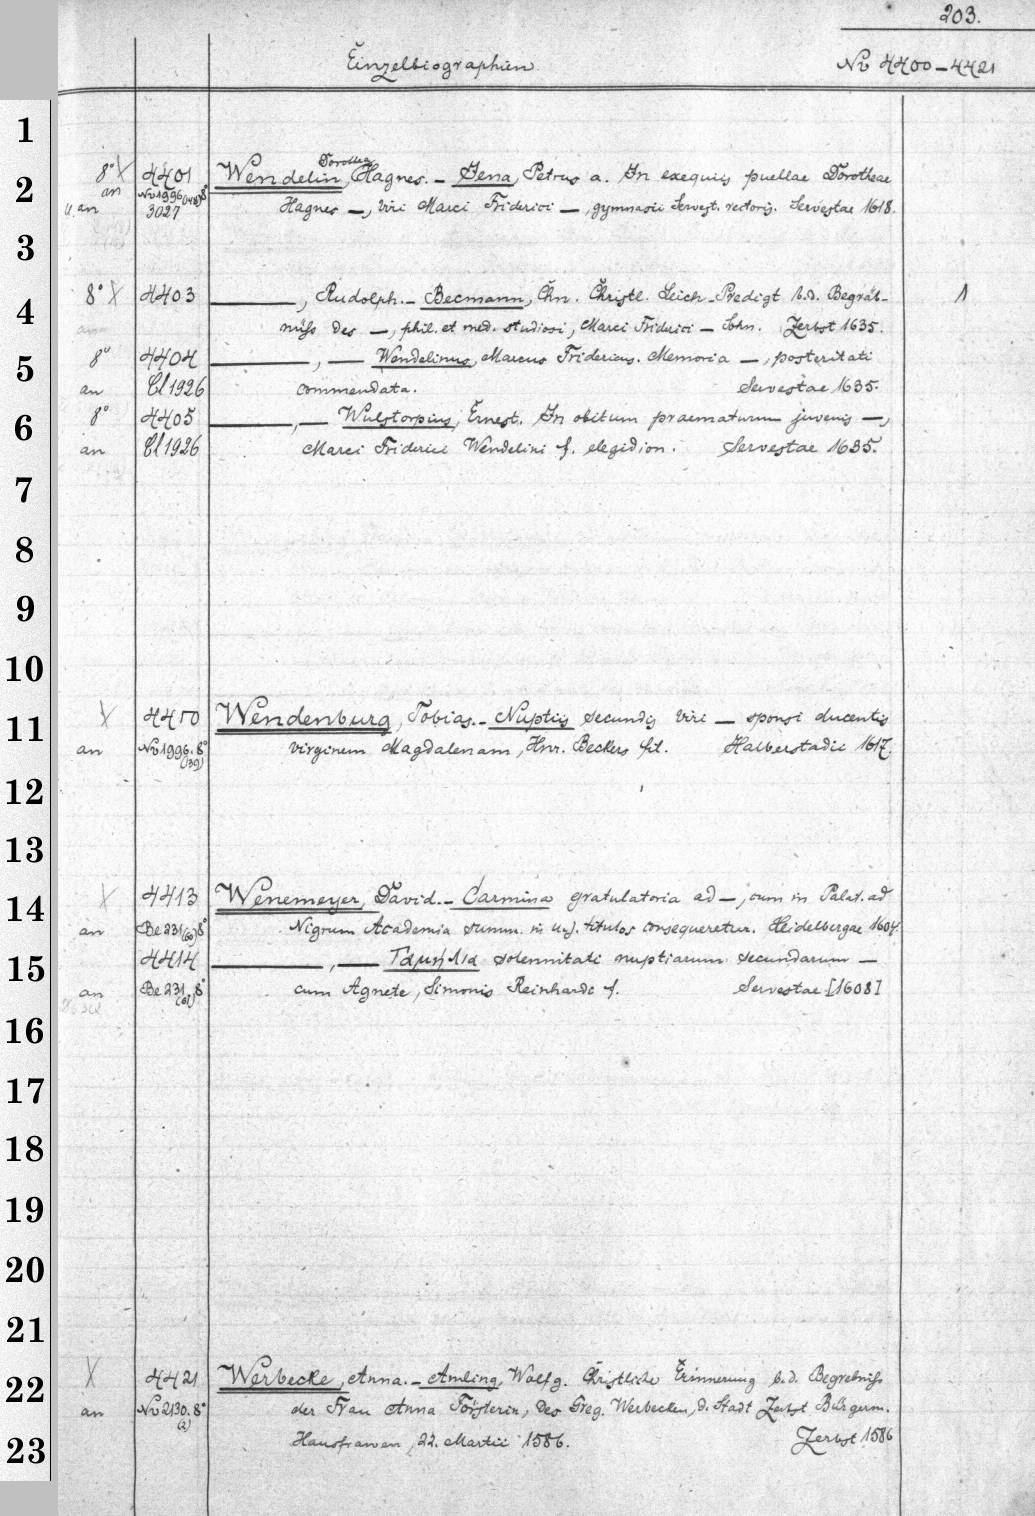 203.
Einzelbiographien
Nv 4400-4421
1
8° 4401 Wendelin, Dorothea Hagnes. - Jena, Petrus a. In exequiis puellae Dorotheae
2
an Nv 1996 8°
u. an 3027 Hagnes -, viri Marci Friderici -, gymnasii Servest. rectoris. Servestae 1618.
3
8° X 4403 -, Rudolph. - Becmann, Chn. Christl. Leich-Predigt b.d. Begräb- 1
4
nüss des -, phil. et med. studiosi, Marci Friderici - Sohn. Zerbst 1635.
8° 4404 -, - Wendelinus, Marcus Fridericus. Memoria -, posteritati
5
an Cl 1926 commendata. Servestae 1635.
8° 4405 -, - Wulstorpius, Ernest. In obitum praematurum juvenis -,
6
an Cl 1926 Marci Friderici Wendelini f. elegidion. Servestae 1635.
7
8
9
10
X 4410 Wendenburg, Tobias. - Nuptiis secundis viri - sponsi ducentis
11
an Nv 1996. 8° (39) virginem Magdalenam, Hnr. Beckers fil. Halberstadii 1617.
12
13
X 4413 Wenemeyer, David. - Carmina gratulatoria ad -, cum in Palat. ad
14
an Be 231 (60) 8° Nigrum Academia summ. in u.j. titulos consequeretur. Heidelbergae 1604.
4414 -, - Γαμήλια solennitati nuptiarum secundarum -
15
an Be 231 (61) 8° cum Agnete, Simonis Reinhardi f. Servestae [1608]
16
17
18
19
20
21
X 4421 Werbecke, Anna. - Amling, Wolfg. Christliche Erinnerung b.d. Begrebniss
22
an Nv 2130. 8° (2) der Frau Anna Försterin, des Greg. Werbecken, d. Stadt Zerbst Bürgerm.
23
Hausfrawen, 22. Martii 1586. Zerbst 1586